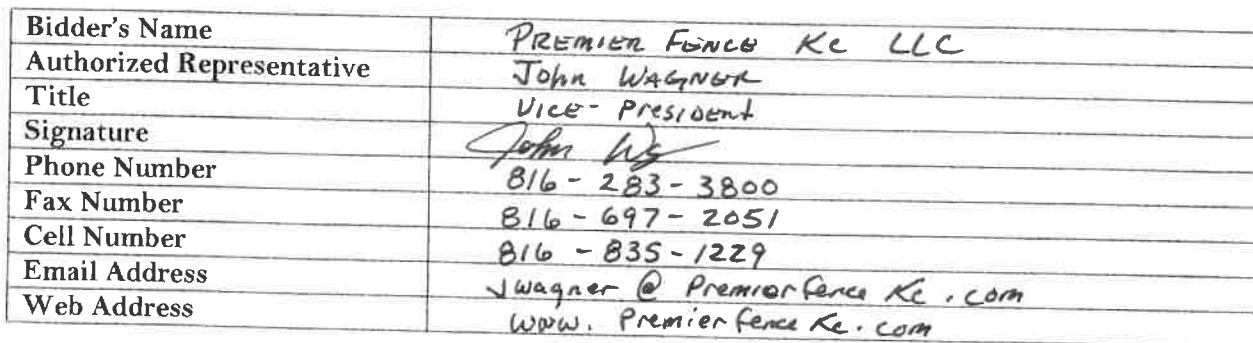 Bidder's Name PREMIER FENCE KC LLC
Authorized Representative John WAGNER
Title VICE-PRESIDENT
Signature John W
Phone Number 816-283-3800
Fax Number 816-697-2051
Cell Number 816-835-1229
Email Address jwagner@PremierfenceKc.com
Web Address www.PremierfenceKc.com